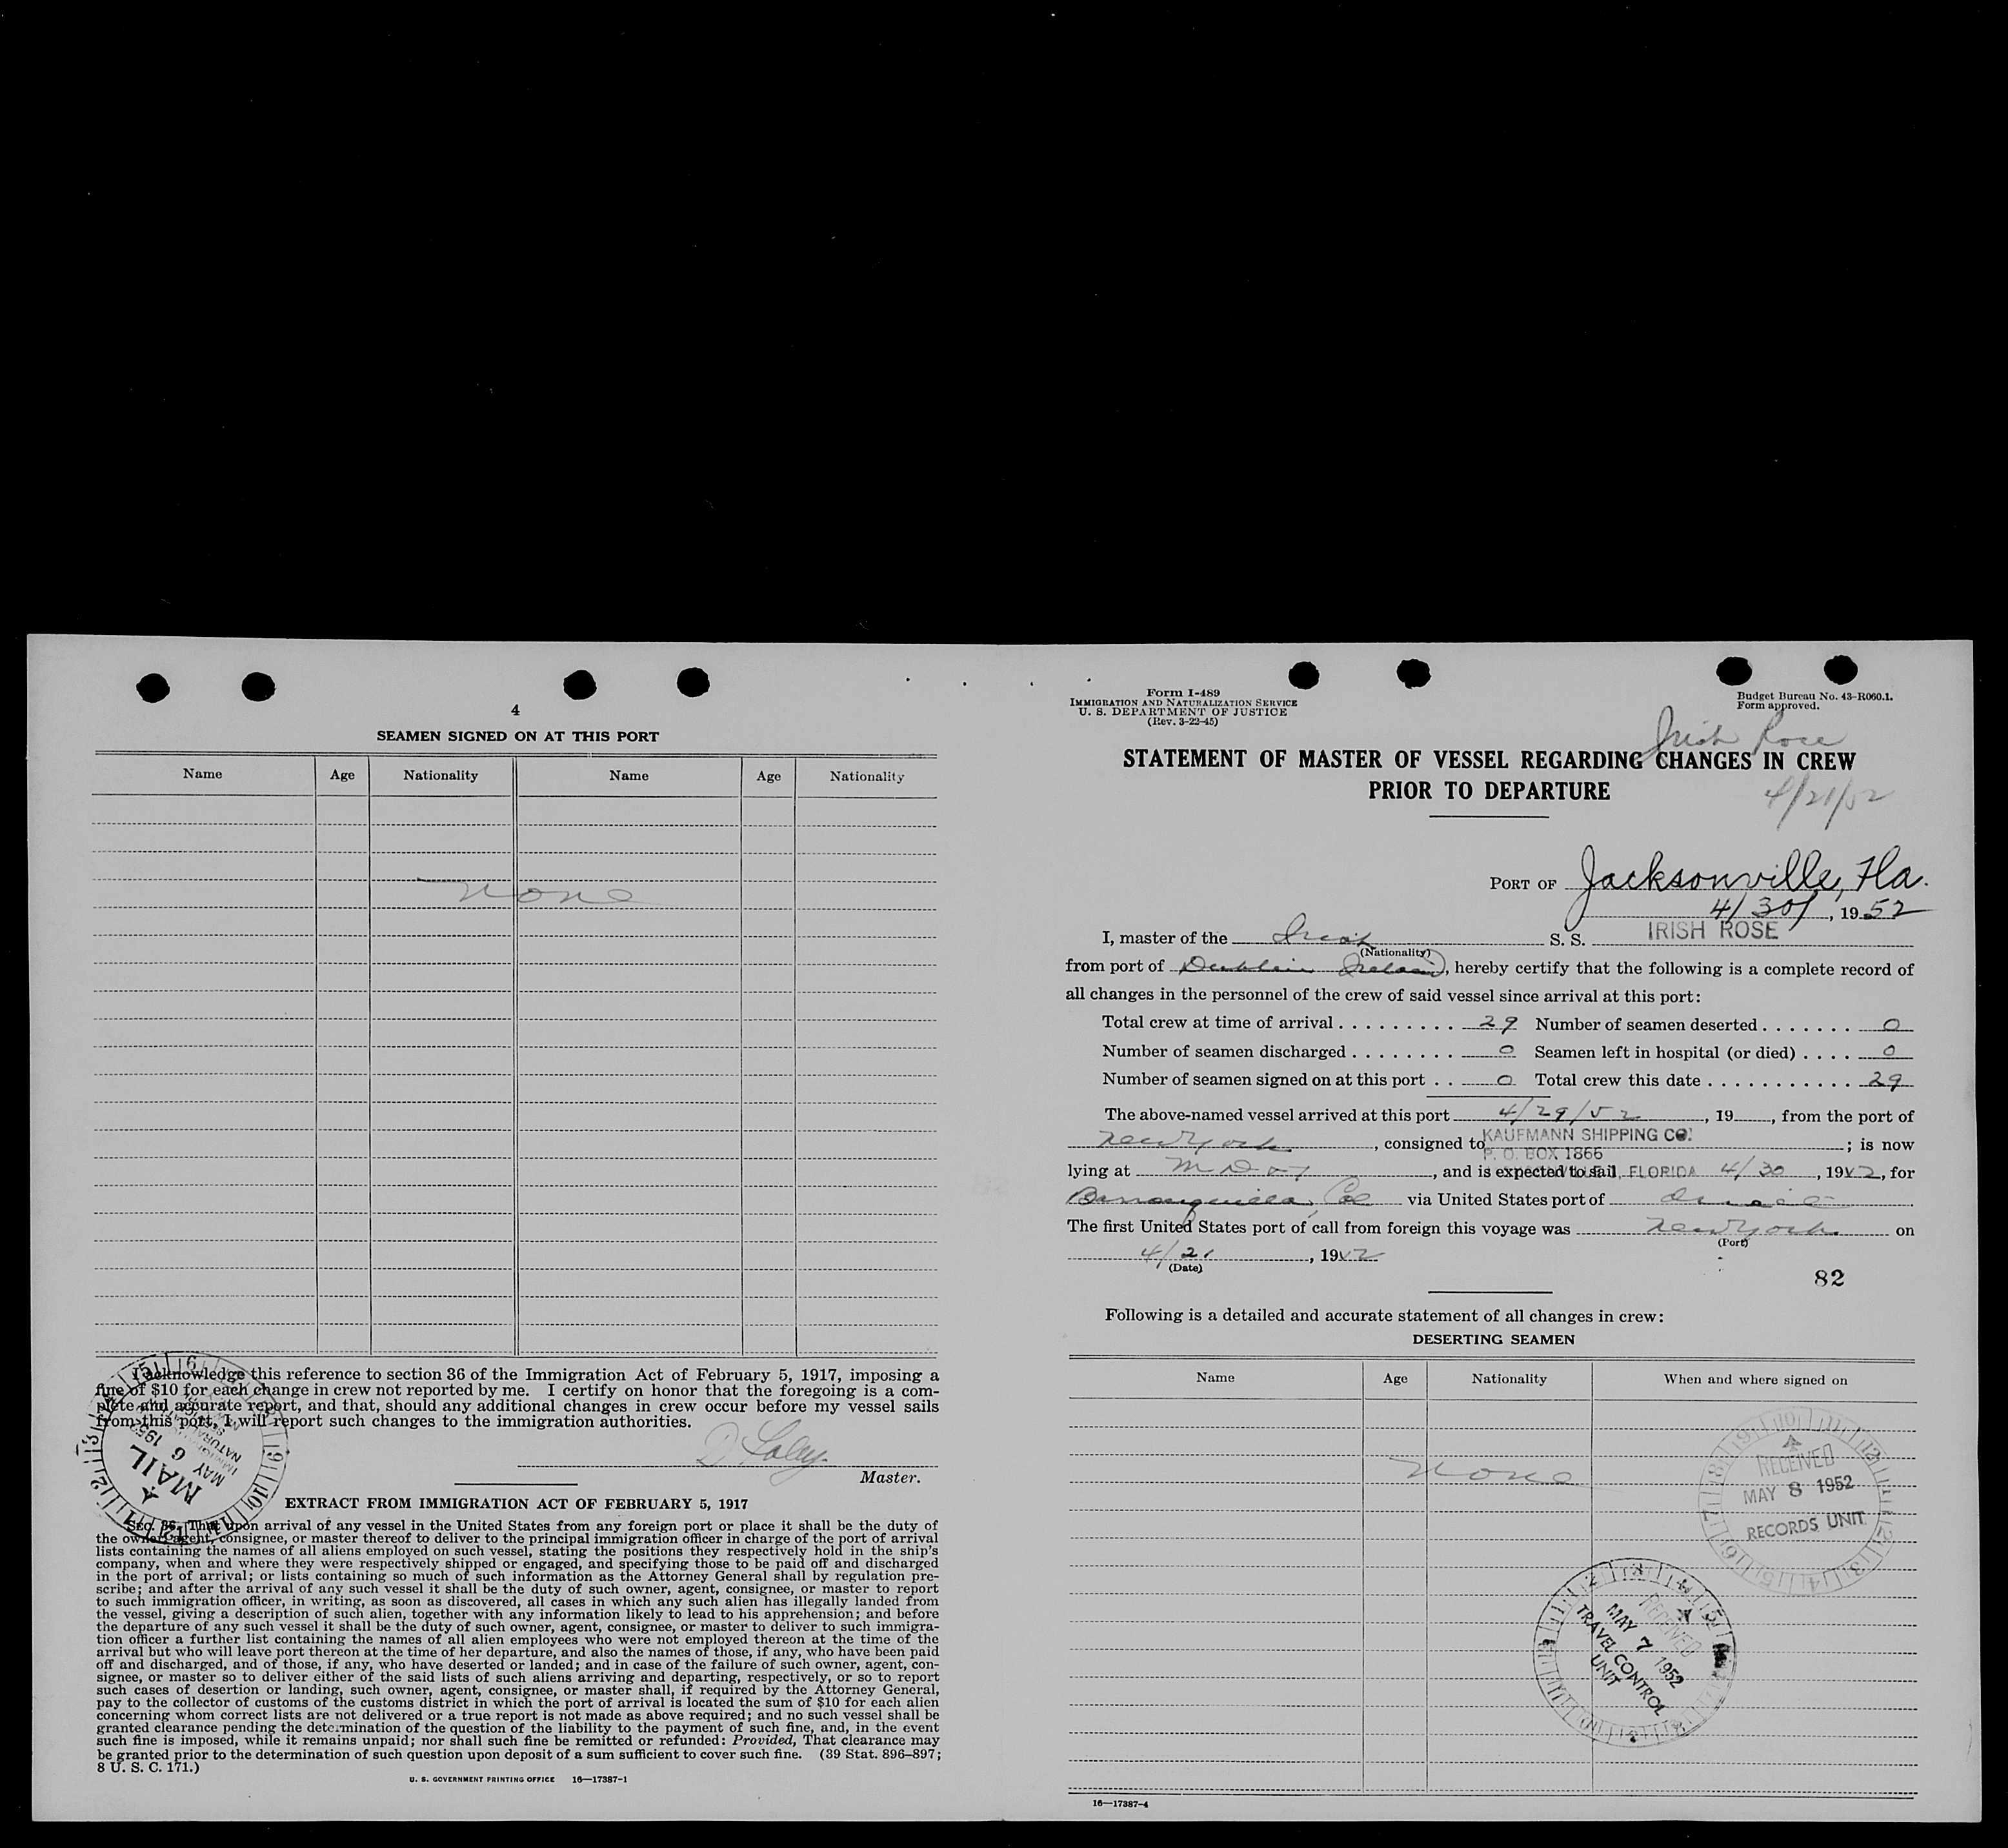 4
SEAMEN SIGNED ON AT THIS PORT
Name Age Nationality Name Age Nationality
none
I acknowledge this reference to section 36 of the Immigration Act of February 5, 1917, imposing a
fine of $10 for each change in crew not reported by me. I certify on honor that the foregoing is a com-
plete and accurate report, and that, should any additional changes in crew occur before my vessel sails
from this port, I will report such changes to the immigration authorities.
Master.
MAIL
MAY 6 1952
EXTRACT FROM IMMIGRATION ACT OF FEBRUARY 5, 1917
Sec. 36. That upon arrival of any vessel in the United States from any foreign port or place it shall be the duty of
the owner, agent, consignee, or master thereof to deliver to the principal immigration officer in charge of the port of arrival
lists containing the names of all aliens employed on such vessel, stating the positions they respectively hold in the ship's
company, when and where they were respectively shipped or engaged, and specifying those to be paid off and discharged
in the port of arrival; or lists containing so much of such information as the Attorney General shall by regulation pre-
scribe; and after the arrival of any such vessel it shall be the duty of such owner, agent, consignee, or master to report
to such immigration officer, in writing, as soon as discovered, all cases in which any such alien has illegally landed from
the vessel, giving a description of such alien, together with any information likely to lead to his apprehension; and before
the departure of any such vessel it shall be the duty of such owner, agent, consignee, or master to deliver to such immigra-
tion officer a further list containing the names of all alien employees who were not employed thereon at the time of the
arrival but who will leave port thereon at the time of her departure, and also the names of those, if any, who have been paid
off and discharged, and of those, if any, who have deserted or landed; and in case of the failure of such owner, agent, con-
signee, or master so to deliver either of the said lists of such aliens arriving and departing, respectively, or so to report
such cases of desertion or landing, such owner, agent, consignee, or master shall, if required by the Attorney General,
pay to the collector of customs of the customs district in which the port of arrival is located the sum of $10 for each alien
concerning whom correct lists are not delivered or a true report is not made as above required; and no such vessel shall be
granted clearance pending the determination of the question of the liability to the payment of such fine, and, in the event
such fine is imposed, while it remains unpaid; nor shall such fine be remitted or refunded: Provided, That clearance may
be granted prior to the determination of such question upon deposit of a sum sufficient to cover such fine. (39 Stat. 896-897;
8 U. S. C. 171.)
U. S. GOVERNMENT PRINTING OFFICE 16—17387-1
Form I-489
IMMIGRATION AND NATURALIZATION SERVICE
U. S. DEPARTMENT OF JUSTICE
(Rev. 3-22-45)
Budget Bureau No. 43-R060.1.
Form approved.
Irish Rose
STATEMENT OF MASTER OF VESSEL REGARDING CHANGES IN CREW
PRIOR TO DEPARTURE
4/21/52
PORT OF Jacksonville, Fla.
4/30/, 1952
I, master of the Irish S. S. IRISH ROSE
(Nationality)
from port of Dublin Ireland, hereby certify that the following is a complete record of
all changes in the personnel of the crew of said vessel since arrival at this port:
Total crew at time of arrival . . . . . . . . . 29 Number of seamen deserted . . . . . . . 0
Number of seamen discharged . . . . . . . . 0 Seamen left in hospital (or died) . . . . 0
Number of seamen signed on at this port . . 0 Total crew this date . . . . . . . . . . . 29
The above-named vessel arrived at this port 4/29/52, 19, from the port of
New York, consigned to KAUFMANN SHIPPING CO. ; is now
P. O. BOX 1866
lying at , and is expected to sail, FLORIDA 4/30, 1952, for
Barranquilla, Col via United States port of
The first United States port of call from foreign this voyage was New York on
(Port)
4/21, 1952
(Date)
82
Following is a detailed and accurate statement of all changes in crew:
DESERTING SEAMEN
Name Age Nationality When and where signed on
none
RECEIVED
MAY 8 1952
RECORDS UNIT
RECEIVED
MAY 7 1952
TRAVEL CONTROL
UNIT
16—17387-4